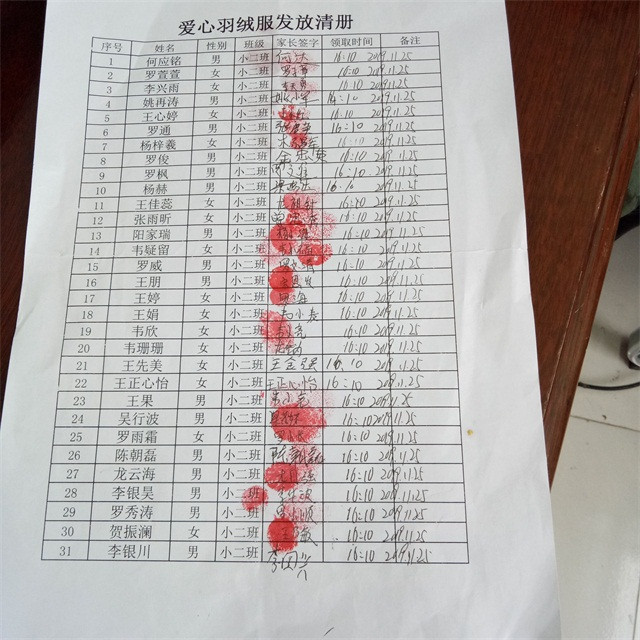 爱心羽绒服发放清册
序号 姓名 性别 班级 家长签字 领取时间 备注
1 何应铭 男 小二班 何达 16:10 2019.11.25
2 罗萱萱 女 小二班 16:10 2019.11.25
3 李兴雨 女 小二班 16:10 2019.11.25
4 姚再涛 男 小二班 16:10 2019.11.25
5 王心婷 女 小二班 16:10 2019.11.25
6 罗通 男 小二班 16:10 2019.11.25
7 杨梓羲 女 小二班 16:10 2019.11.25
8 罗俊 男 小二班 16:10 2019.11.25
9 罗枫 男 小二班 16:10 2019.11.25
10 杨赫 男 小二班 16:10 2019.11.25
11 王佳蕊 女 小二班 16:10 2019.11.25
12 张雨昕 女 小二班 16:10 2019.11.25
13 阳家瑞 男 小二班 16:10 2019.11.25
14 韦疑留 女 小二班 16:10 2019.11.25
15 罗威 男 小二班 16:10 2019.11.25
16 王朋 男 小二班 16:10 2019.11.25
17 王婷 女 小二班 16:10 2019.11.25
18 王娟 女 小二班 16:10 2019.11.25
19 韦欣 女 小二班 16:10 2019.11.25
20 韦珊珊 女 小二班 16:10 2019.11.25
21 王先美 女 小二班 王金强 16:10 2019.11.25
22 王正心怡 女 小二班 王正心怡 16:10 2019.11.25
23 王果 男 小二班 16:10 2019.11.25
24 吴行波 男 小二班 16:10 2019.11.25
25 罗雨霜 女 小二班 16:10 2019.11.25
26 陈朝磊 男 小二班 16:10 2019.11.25
27 龙云海 男 小二班 16:10 2019.11.25
28 李银昊 男 小二班 16:10 2019.11.25
29 罗秀涛 男 小二班 16:10 2019.11.25
30 贺振澜 女 小二班 16:10 2019.11.25
31 李银川 男 小二班 16:10 2019.11.25